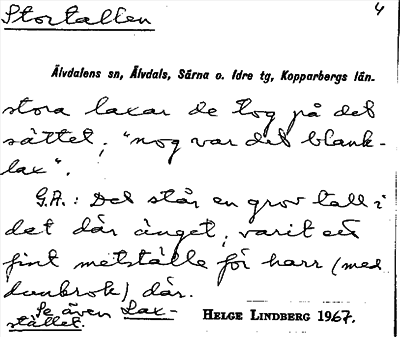 Stortallen
4
Älvdalens sn, Älvdals, Särna o. Idre tg, Kopparbergs län.
stora laxar de tog på det
sättet; "nog var det blank-
lax".
G.A.: Det står en grov tall i
det där änget, varit ett
fint metställe för harr (med
dunkrok) där.
Se även Lax-
stället.
HELGE LINDBERG 1967.